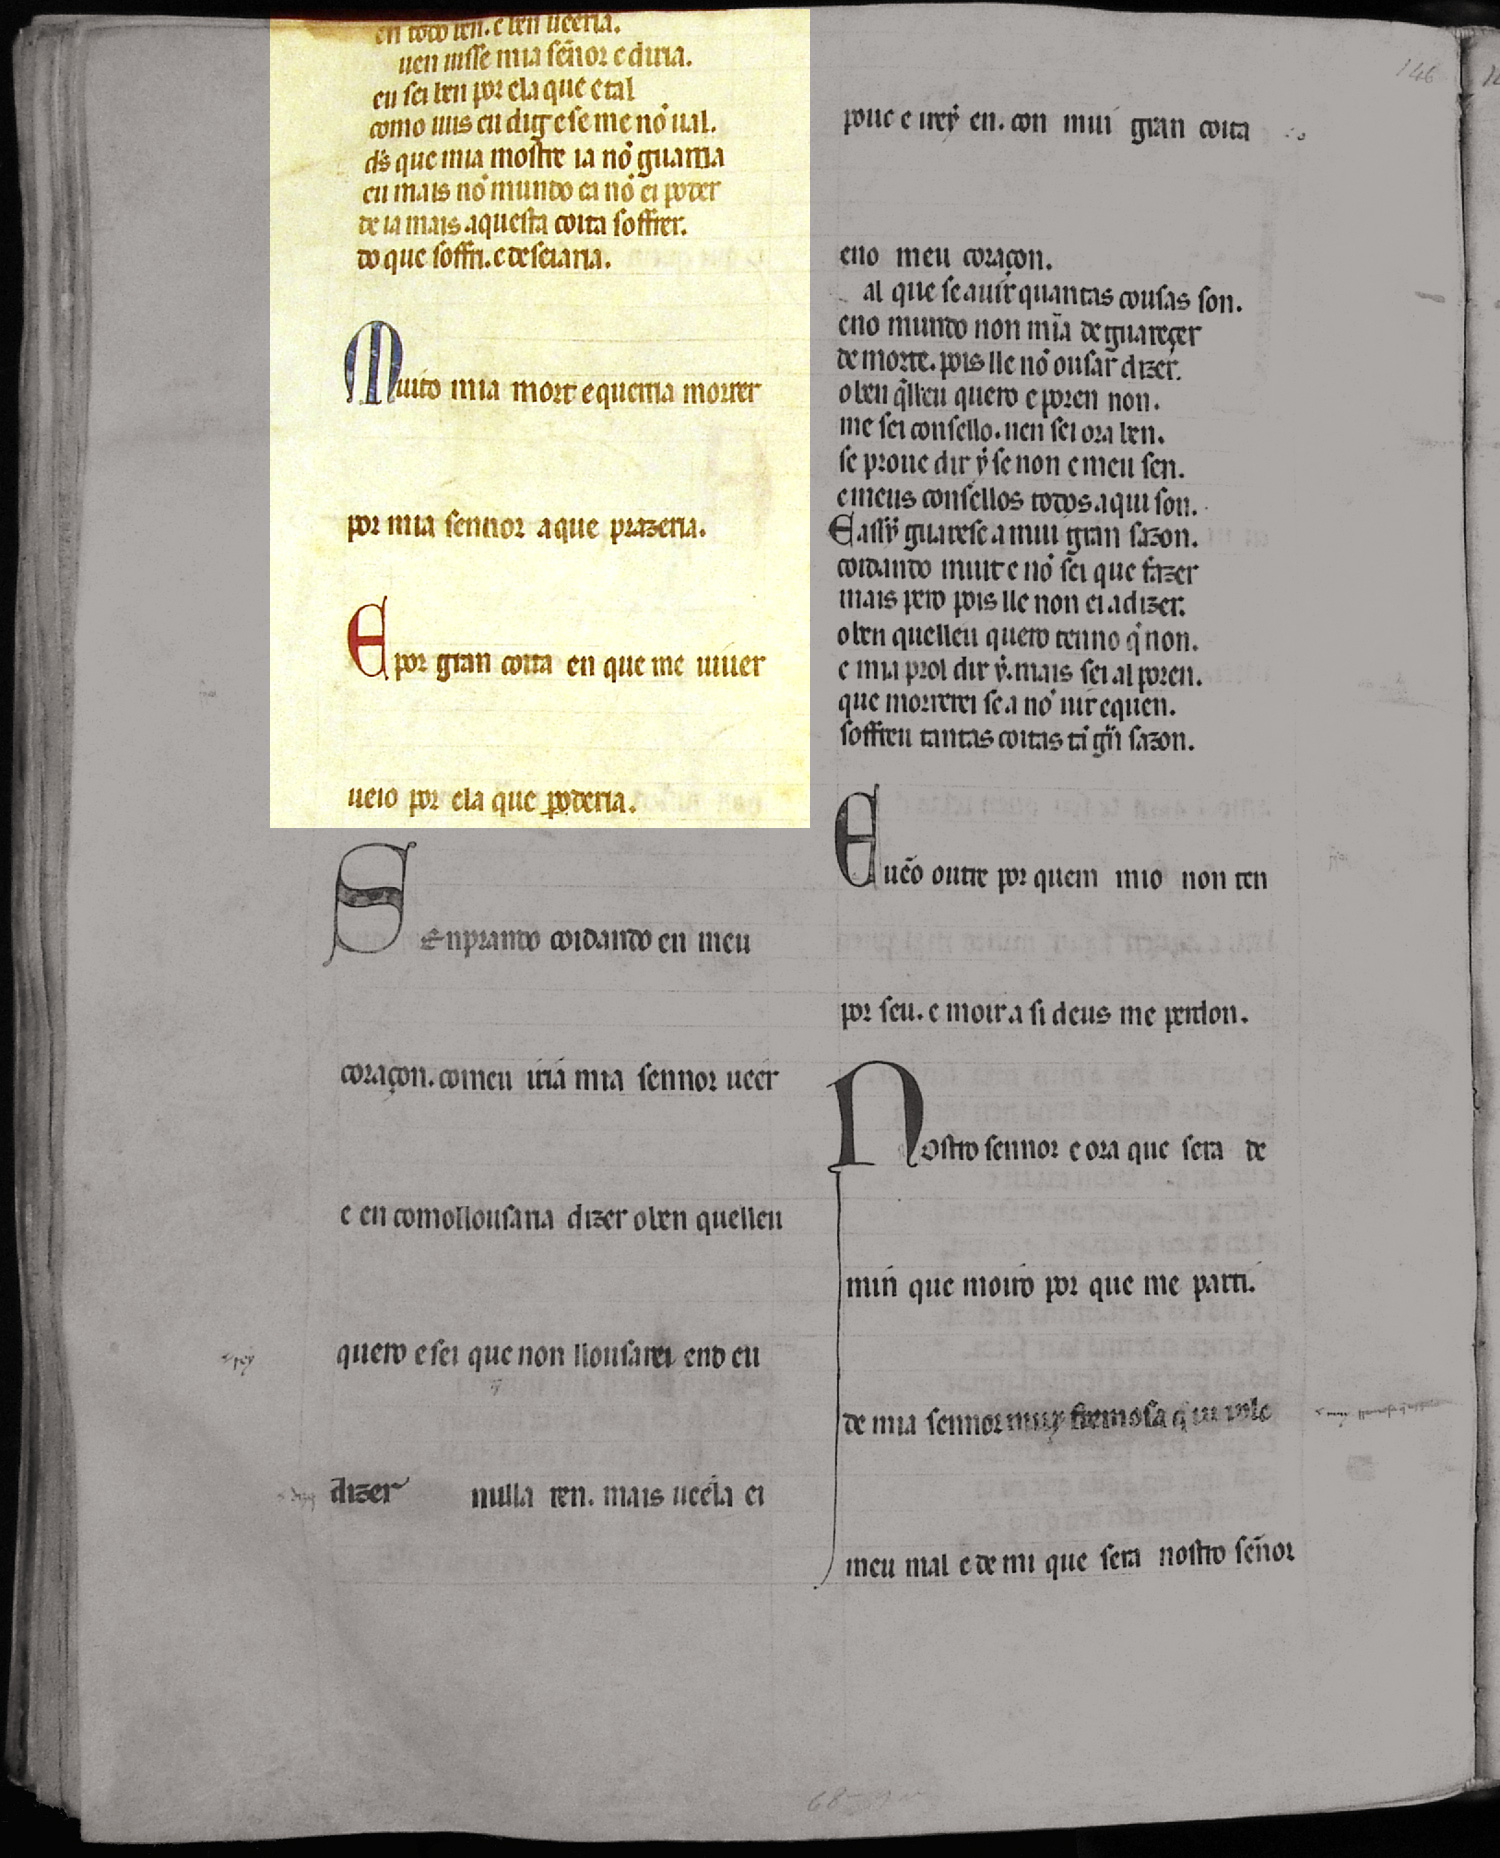 en toto ren. e ben ueeria.
uen uisse mia señor e diria.
eu sei ben por ela que e tal
como uus eu dig e se me nō ual.
d̄s que mia mostre ia nō guarria
eu mais nō mundo ca nō ei poder
de ia mais aquesta coita soffrer.
do que soffri. e deseiaria.
Muito mia mort e querria morrer
por mia sennor a que prazeria.
E por gran coita en que me uiuer
ueio por ela que poderia.
SEnprando coidando en meu
coraçon. comeu iria mia sennor ueer
e en comollousaria dizer o ben quelleu
quero e sei que non llousarei end eu
dizer nulla ren. mais ueela ei
pouc e irey en. con mui gran coita
eno meu coraçon.
al que se a uir quantas cousas son.
eno mundo non mīa de guareçer
de morte. pois lle nō ousar dizer.
o ben q̄lleu quero e poren non.
me sei consello. nen sei ora ben.
se proue dir ẏ se non e meu sen.
e meus consellos todos. aqui son.
E assy guaresc a mui gran sazon.
coidando muit e nō sei que fazer
mais pero pois lle non ei a dizer.
o ben quelleu quero tenno q̄ non.
e mia prol dir ẏ. mais sei al poren.
que morrerei se a nō uir e quen.
soffreu tantas coitas tā grā sazon.
E ueō outre por quem mio non ten
por seu. e moir a si deus me perdon.
Nostro sennor e ora que sera de
min que moiro por que me parti.
de mia sennor muy fremosa q̄ ui polo
meu mal e de mi que sera nostro señor